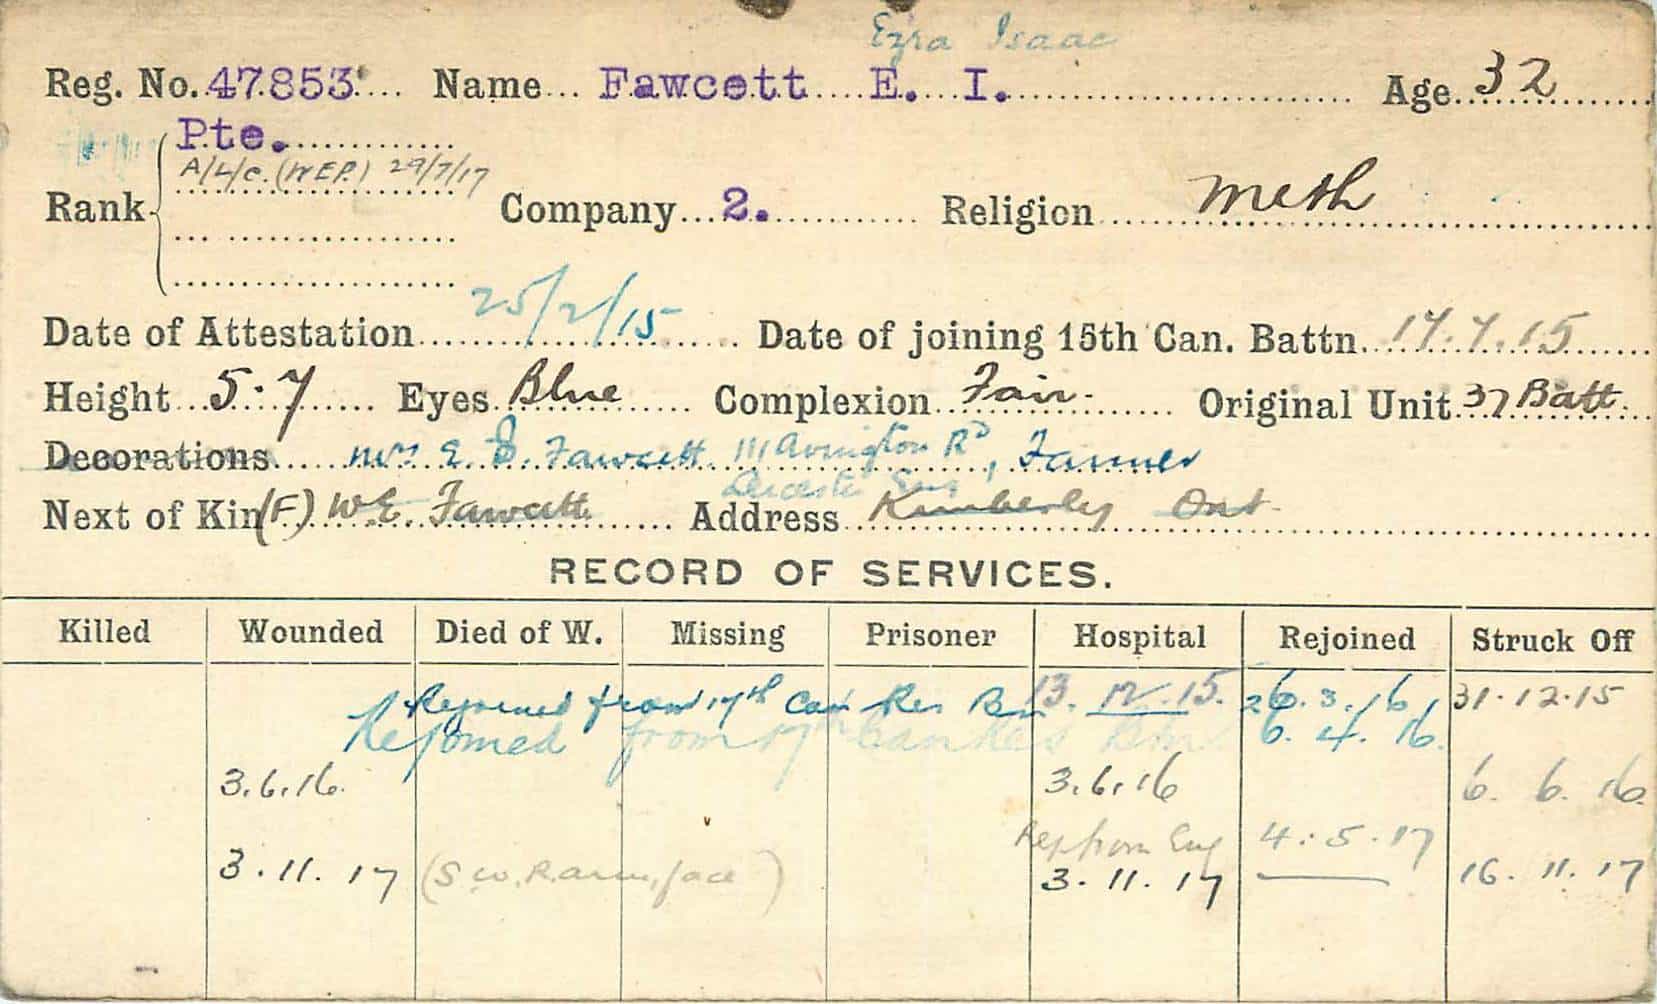 Ezra Isaac
Reg. No. 47853 Name Fawcett E. I. Age 32
Pte.
A/L/C. (WEP.) 29/7/17
Rank Company 2. Religion Meth
Date of Attestation 25/2/15 Date of joining 15th Can. Battn. 17.7.15
Height 5.7 Eyes Blue Complexion Fair Original Unit 37 Batt.
Decorations Mrs E. Fawcett 111 Avington Rd, Farmer
Leicester Eng
Next of Kin (F) W.E. Fawcett Address Kimberly Ont
RECORD OF SERVICES.
Killed Wounded Died of W. Missing Prisoner Hospital Rejoined Struck Off
Rejoined from 17th Can Res Bn 13.12.15. 26.3.16 31.12.15
Rejoined from 17th Can Res Bn 6.4.16.
3.6.16. 3.6.16 6.6.16
Rep from Eng 4.5.17
3.11.17 (S.W.R.arm, face) 3.11.17 16.11.17